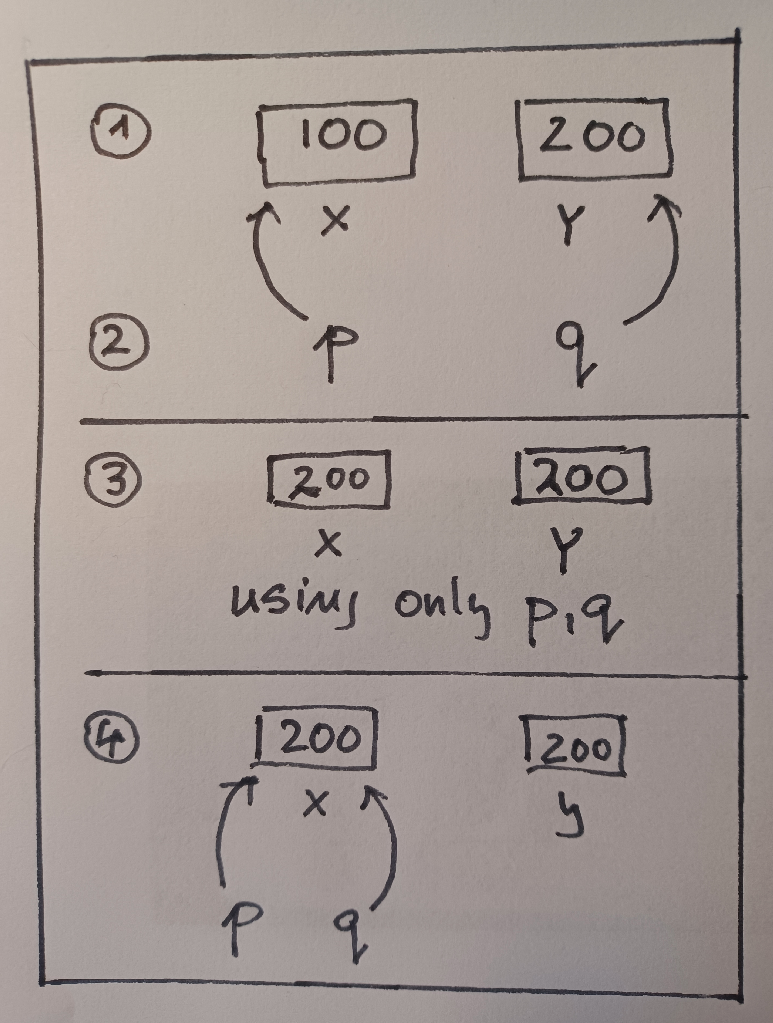 ① 100 200
X Y
② p q
③ 200 200
X Y
using only p,q
④ 200 200
X y
p q